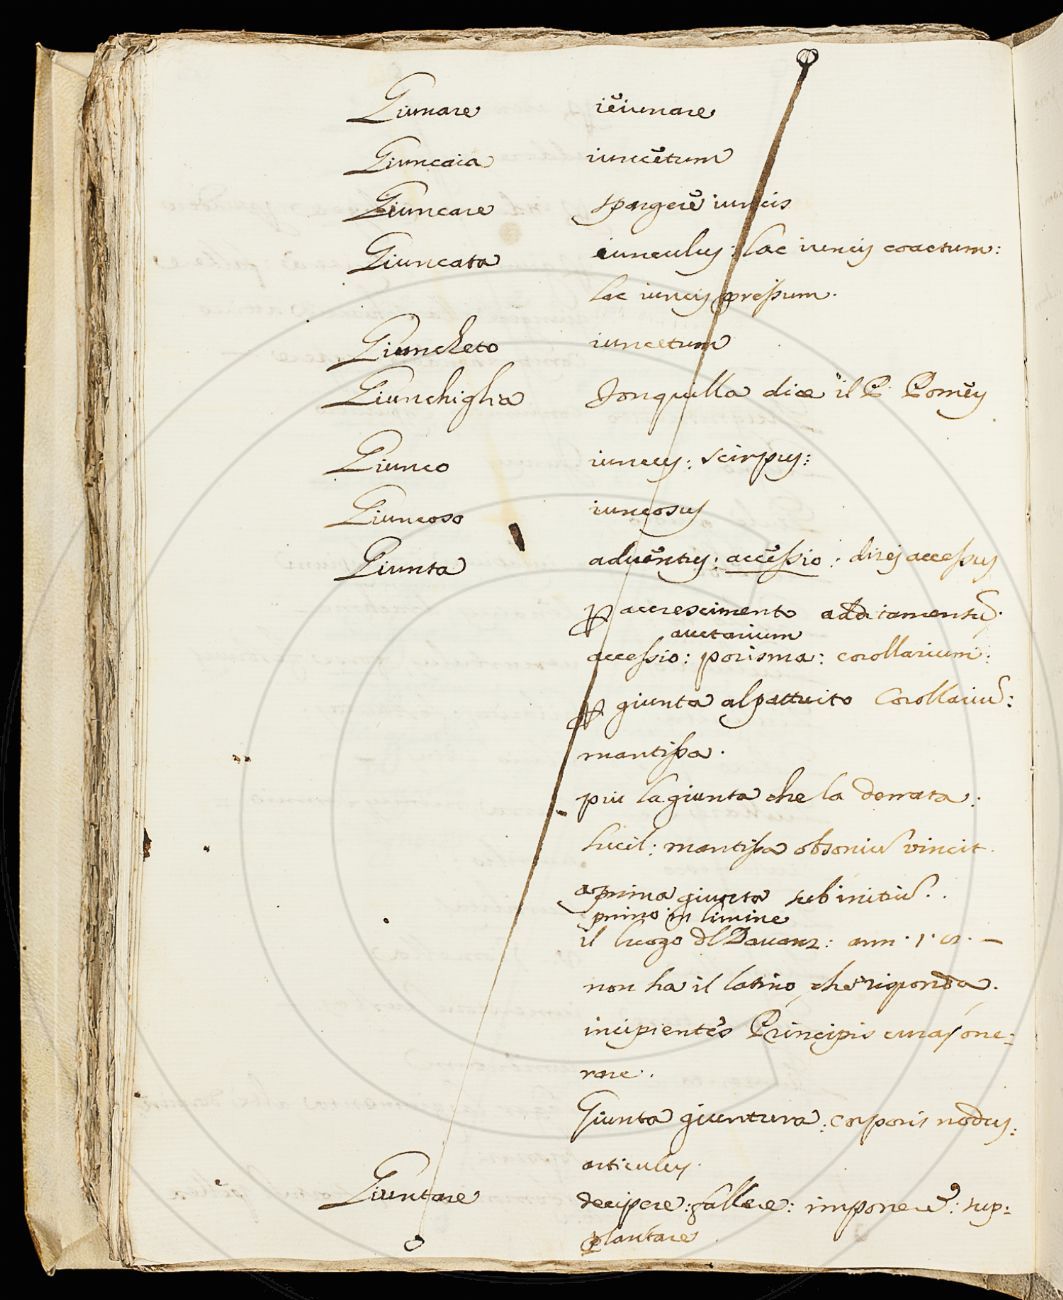 Giunare ieiunare
Giuncaia iuncétum
Giuncare spargere iuncis
Giuncata iunculus: lac iuncis coactum:
lac iuncis pressum.
Giuncheto iuncetum
Giunchiglia Jonquilla dice il P. Poméy
Giunco iuncus: scirpus:
Giuncoso iuncosus
Giunta advéntus: accéssio: accessus
accrescimento additamentũ.
auctarium
accessio: porisma: corollarium:
giunta al pattuito Corollariũ:
mantissa.
più la giunta che la derrata:
Lucil: mantissa obsoniũ vincit.
a prima giunta sub initiũ.
primo in limine
il luogo dl Davanz: ann. 1. —
non ha il latino che risponda.
incipientes Principis curas one=
rare.
Giunta giuntura: corporis nodus:
articulus.
Giuntare decipere: fallere: imponere: sup=
plantare.